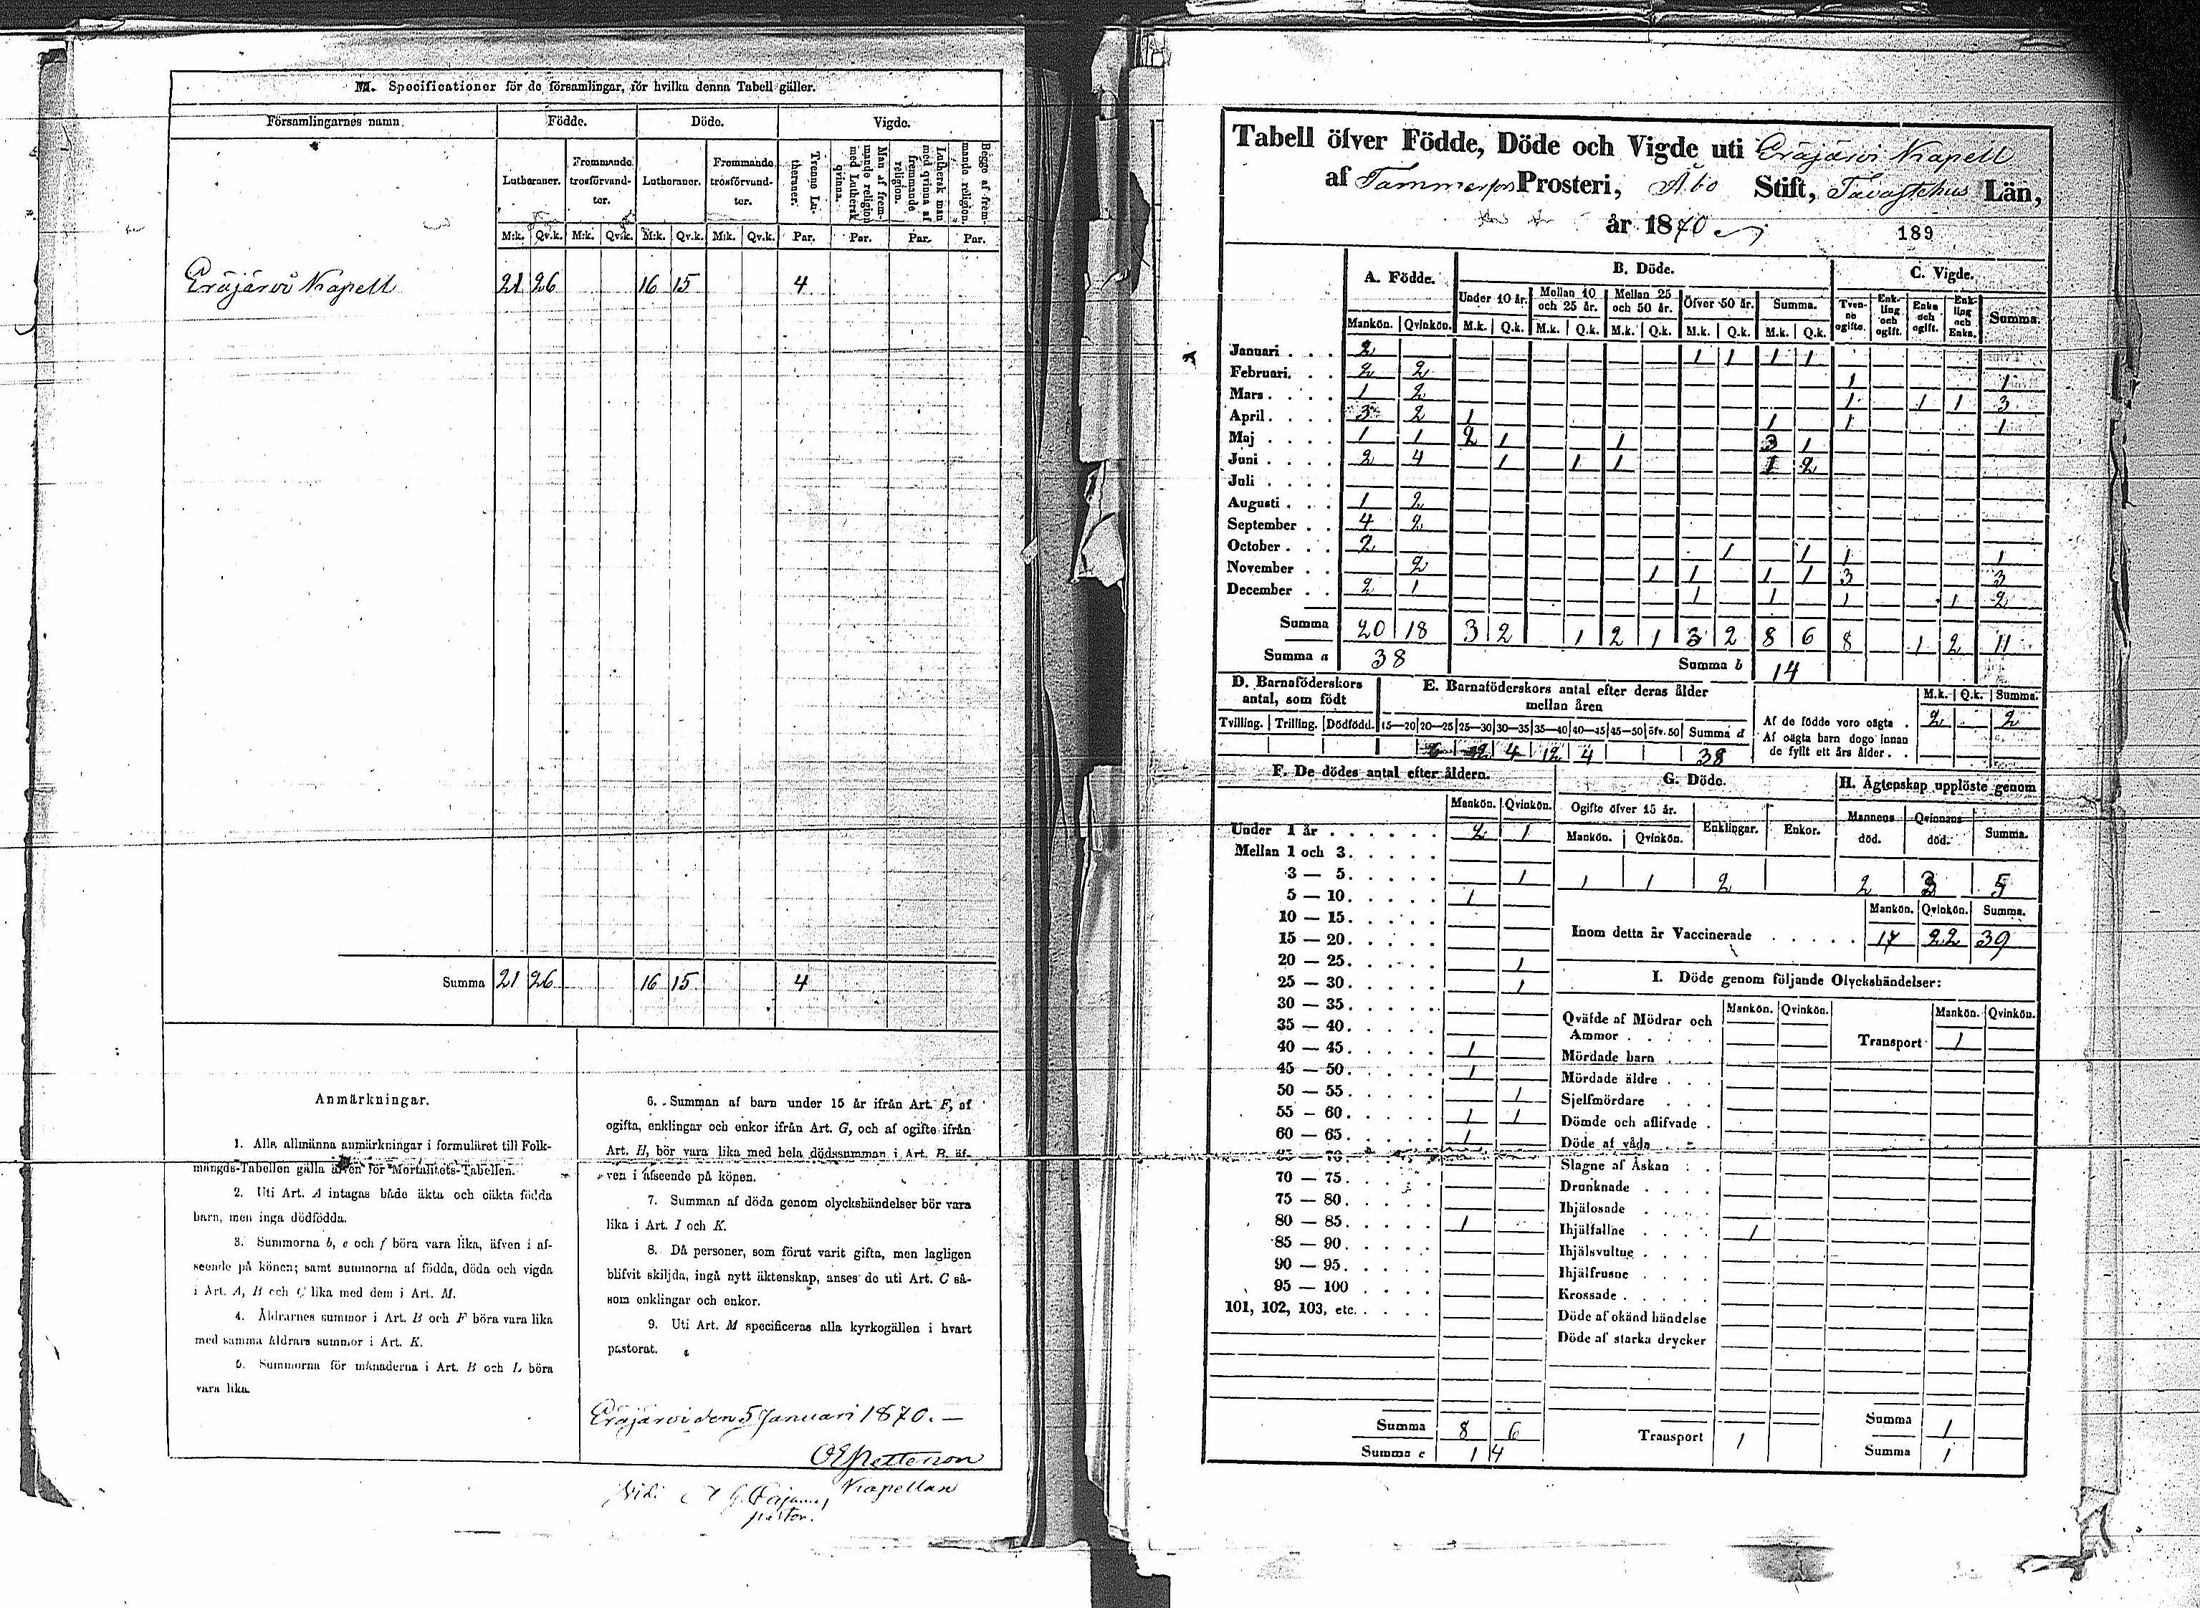 M. Specificationer för de församlingar, för hvilka denna Tabell gäller.
Församlingarnes namn. Födde. Döde. Vigde.
Lutheraner. Frommande trosförvandter. Lutheraner. Frommande trosförvandter. Tvenne Lutheraner. Man af fremmande religion med Luthersk qvinna. Luthersk man med qvinna af fremmande religion. Begge af fremmande religion.
M:k. Qv.k. M:k. Qv.k. M:k. Qv.k. M:k. Qv.k. Par. Par. Par. Par.
Eräjärvi Kapell 21 26 16 15 4
Summa 21 26 16 15 4
Anmärkningar.
1. Alla allmänna anmärkningar i formuläret till Folk-
mängds-Tabellen gälla äfven för Mortalitets-Tabellen.
2. Uti Art. A intagas både äkta och oäkta födda
barn, men inga dödfödda.
3. Summorna b, e och f böra vara lika, äfven i af-
seende på könen; samt summorna af födda, döda och vigda
i Art. A, B och C lika med dem i Art. M.
4. Åldrarnes summor i Art. B och F böra vara lika
med samma åldrars summor i Art. K.
5. Summorna för månaderna i Art. B och L böra
vara lika.
6. Summan af barn under 15 år ifrån Art. F, af
ogifta, enklingar och enkor ifrån Art. G, och af ogifte ifrån
Art. H, bör vara lika med hela dödssumman i Art. B, äf-
ven i afseende på könen.
7. Summan af döda genom olyckshändelser bör vara
lika i Art. I och K.
8. Då personer, som förut varit gifta, men lagligen
blifvit skiljda, ingå nytt äktenskap, anses de uti Art. C så-
som enklingar och enkor.
9. Uti Art. M specificeras alla kyrkogällen i hvart
pastorat.
Eräjärvi den 5 Januari 1870. —
Kapellan
Vidi
pastor.
Tabell öfver Födde, Döde och Vigde uti Eräjärvi Kapell
af Tammerfors Prosteri, Åbo Stift, Tavastehus Län,
år 1870
189
A. Födde. B. Döde. C. Vigde.
Under 10 år. Mellan 10 och 25 år. Mellan 25 och 50 år. Öfver 50 år. Summa. Tvenne ogifte. Enkling och ogift. Enka och ogift. Enkling och Enka. Summa.
Mankön. Qvinkön. M.k. Q.k. M.k. Q.k. M.k. Q.k. M.k. Q.k. M.k. Q.k.
Januari . . . 2 1 1 1 1
Februari . . . 2 2 1 1
Mars . . . . 1 2 1 1 1 3
April . . . . 3 2 1 1 1 1
Maj . . . . 1 1 2 1 1 3 1
Juni . . . . 2 4 1 1 1 1 2
Juli . . . .
Augusti . . . 1 2
September . . 4 2
October . . . 2 1 1 1 1
November . . 2 1 1 1 1 3 3
December . . 2 1 1 1 1 1 2
Summa 20 18 3 2 1 2 1 3 2 8 6 8 1 2 11
Summa a 38 Summa b 14
D. Barnaföderskors antal, som födt
Tvilling. Trilling. Dödfödd.
E. Barnaföderskors antal efter deras ålder mellan åren
15—20 20—25 25—30 30—35 35—40 40—45 45—50 öfv. 50 Summa d
4 12 4 38
M.k. Q.k. Summa.
Af de födde voro oägta . 2 2
Af oägta barn dogo innan
de fyllt ett års ålder . .
F. De dödes antal efter åldern.
Mankön. Qvinkön.
Under 1 år . . . . . . 2 1
Mellan 1 och 3 . . . . .
3 — 5 . . . . . 1
5 — 10 . . . . . 1
10 — 15 . . . . .
15 — 20 . . . . .
20 — 25 . . . . . 1
25 — 30 . . . . . 1
30 — 35 . . . . .
35 — 40 . . . . .
40 — 45 . . . . . 1
45 — 50 . . . . . 1
50 — 55 . . . . . 1
55 — 60 . . . . . 1 1
60 — 65 . . . . . 1
70 — 75 . . . . .
75 — 80 . . . . .
80 — 85 . . . . . 1
85 — 90 . . . . .
90 — 95 . . . . .
95 — 100 . . . .
101, 102, 103, etc. . . . .
Summa 8 6
Summa e 14
G. Döde.
Ogifte öfver 15 år. Enklingar. Enkor.
Mankön. Qvinkön.
1 1 2
H. Ägtenskap upplöste genom
Mannens död. Qvinnans död. Summa.
2 3 5
Mankön. Qvinkön. Summa.
Inom detta år Vaccinerade . . . . . 17 22 39
I. Döde genom följande Olyckshändelser:
Mankön. Qvinkön. Mankön. Qvinkön.
Qväfde af Mödrar och
Ammor . . . . . Transport 1
Mördade barn . . .
Mördade äldre . . .
Sjelfmördare . . .
Dömde och aflifvade .
Döde af våda . .
Slagne af Åskan . .
Drunknade . . . .
Ihjälosade . . . .
Ihjälfallne . . . . 1
Ihjälsvultne . . . .
Ihjälfrusne . . . .
Krossade . . . . .
Döde af okänd händelse
Döde af starka drycker
Summa 1
Transport 1 Summa 1